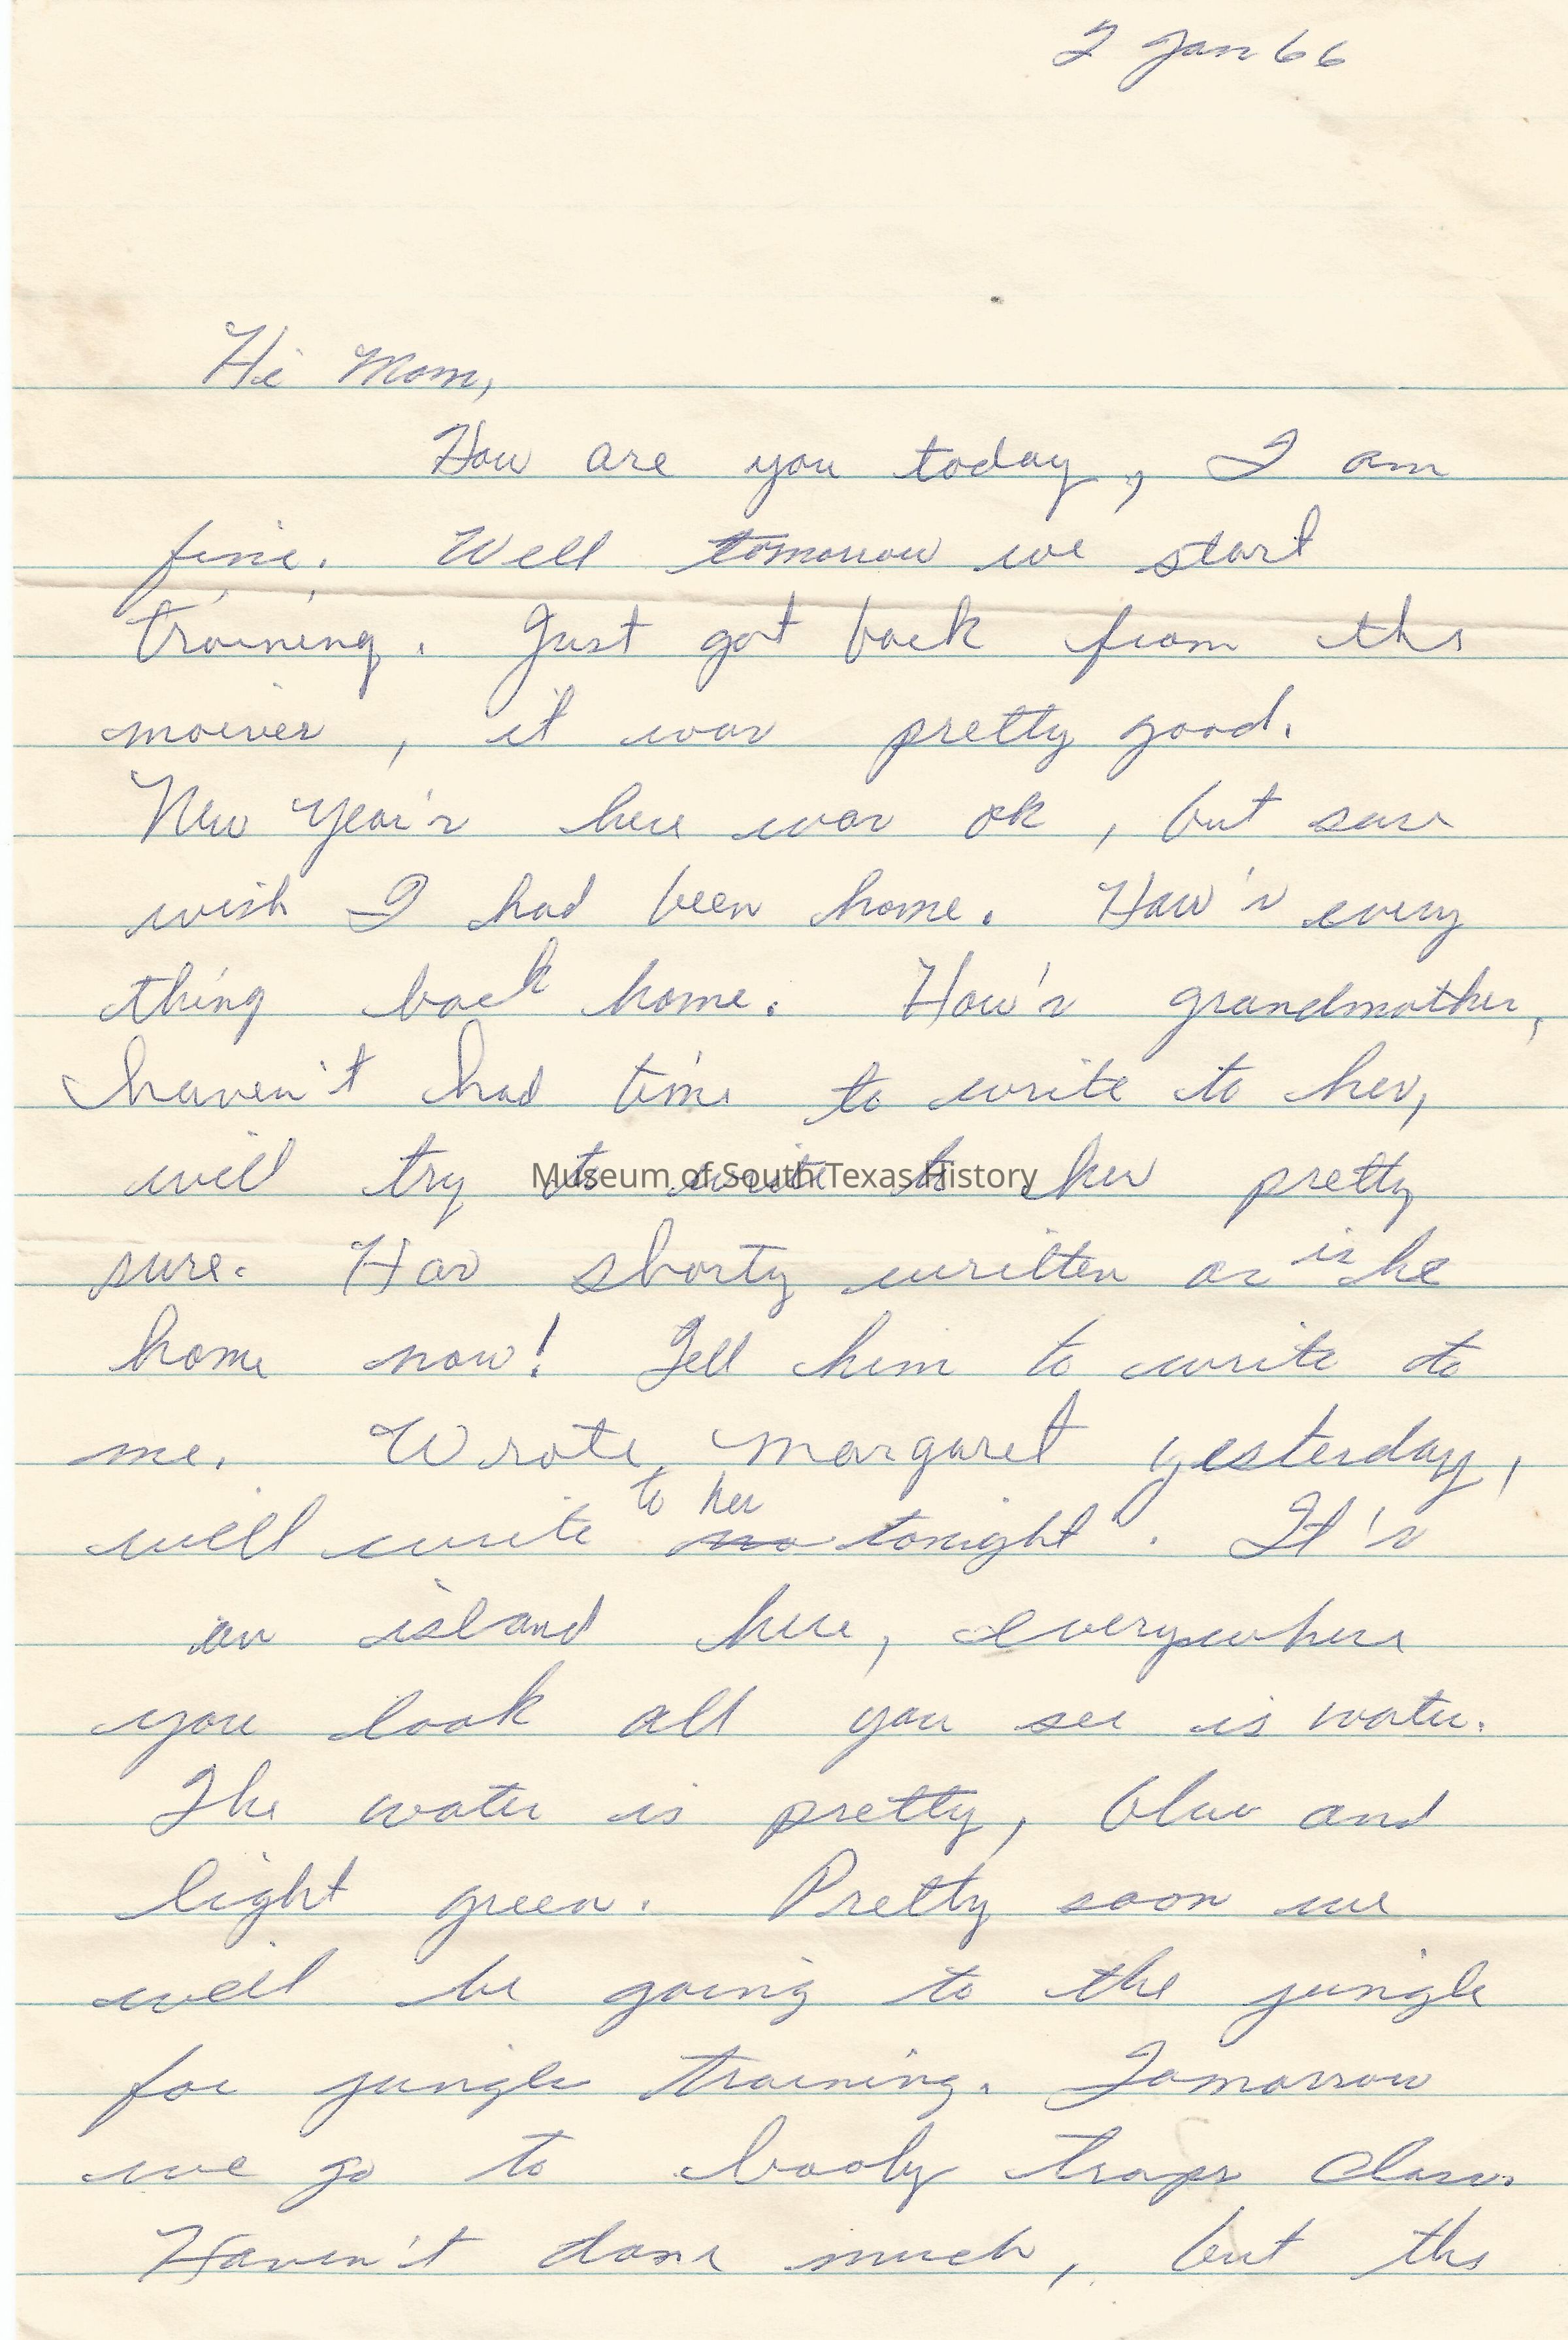 2 Jan 66
Hi Mom,
How are you today, I am
fine. Well tomorrow we start
training. Just got back from the
moives, it was pretty good.
New Year's here was ok, but sure
wish I had been home. How's every
thing back home. How's grandmother,
haven't had time to write to her,
will try to write to her pretty
sure. Has shorty written or is he
home now! Tell him to write to
me. Wrote Margaret yesterday,
will write to her no tonight. It's
an island here, everywhere
you look all you see is water.
The water is pretty, blue and
light green. Pretty soon we
will be going to the jungle
for jungle training. Tomorrow
we go to booby traps class.
Haven't done much, but the
Museum of South Texas History